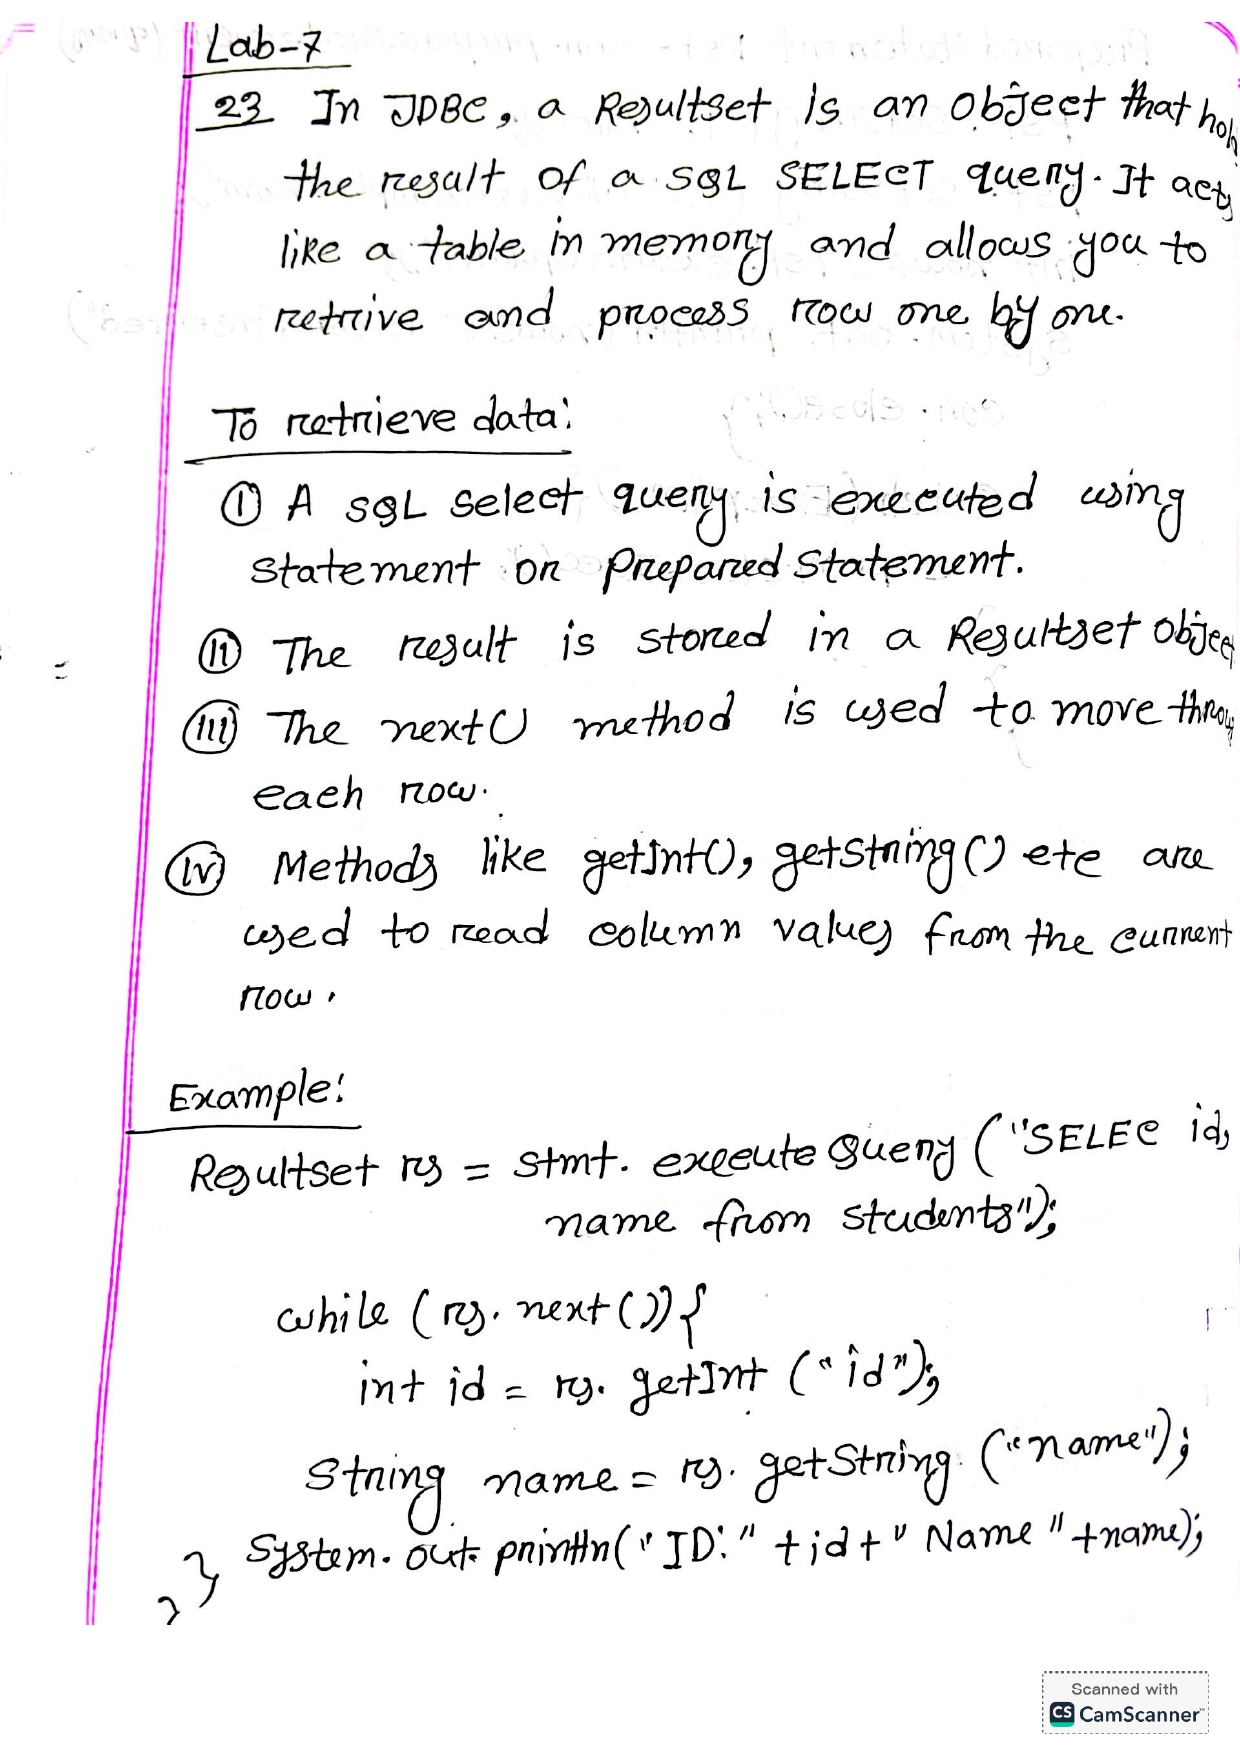 Lab-7
23 In JDBC, a Resultset is an object that hol
the result of a SQL SELECT query. It acts
like a table in memory and allows you to
retrive and process row one by one.
To retrieve data:
(i) A SQL select query is executed using
statement or Prepared Statement.
(ii) The result is stored in a Resultset object
(iii) The next() method is used to move throu
each row.
(iv) Methods like getInt(), getString() etc are
used to read column values from the current
row.
Example:
Resultset rs = stmt. execute Query ("SELEC id,
name from students");
while (rs. next()) {
int id = rs. getInt ("id");
String name = rs. getString ("name");
System. out. println("ID:" + id + " Name " + name);
}
}
Scanned with
CS CamScanner